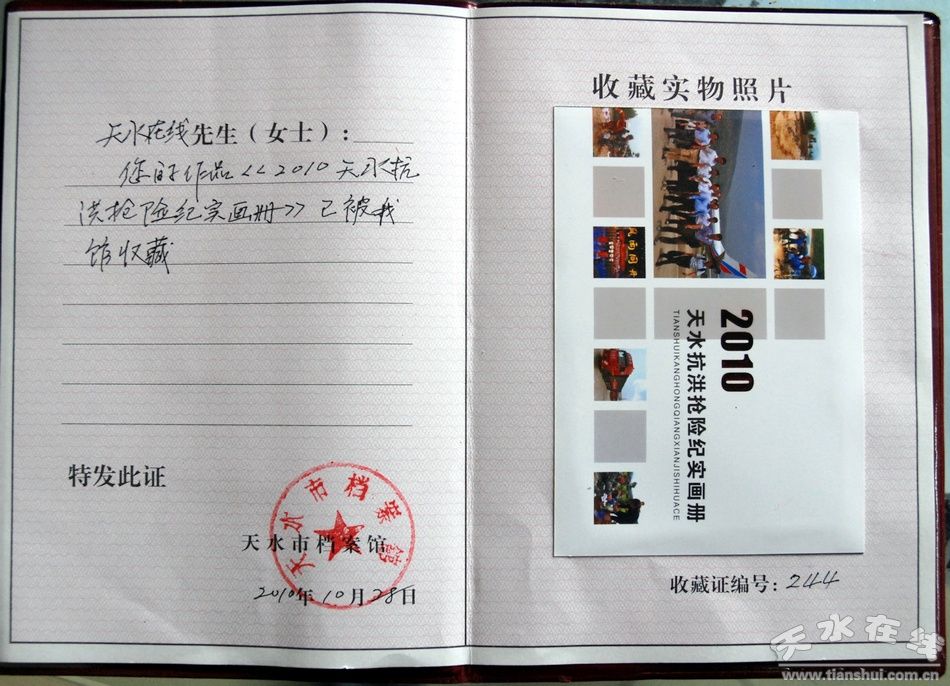 天水在线先生（女士）：
您的作品<<2010天水抗
洪抢险纪实画册>>已被我
馆收藏
特发此证
天水市档案馆
天水市档案馆
2010年10月28日
收藏实物照片
2010
天水抗洪抢险纪实画册
TIANSHUIKANGHONGQIANGXIANJISHIHUACE
收藏证编号：244
天水在线
www.tianshui.com.cn